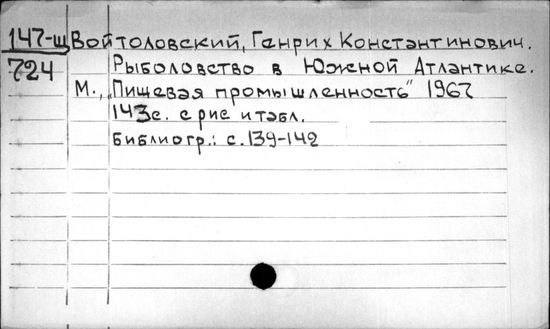 147-щ Войтоловский, Генрих Константинович.
724 Рыболовство в Южной Атлантике.
М., „Пищевая промышленность" 1967
143с. с рис и табл.
Библиогр.: с. 139-142